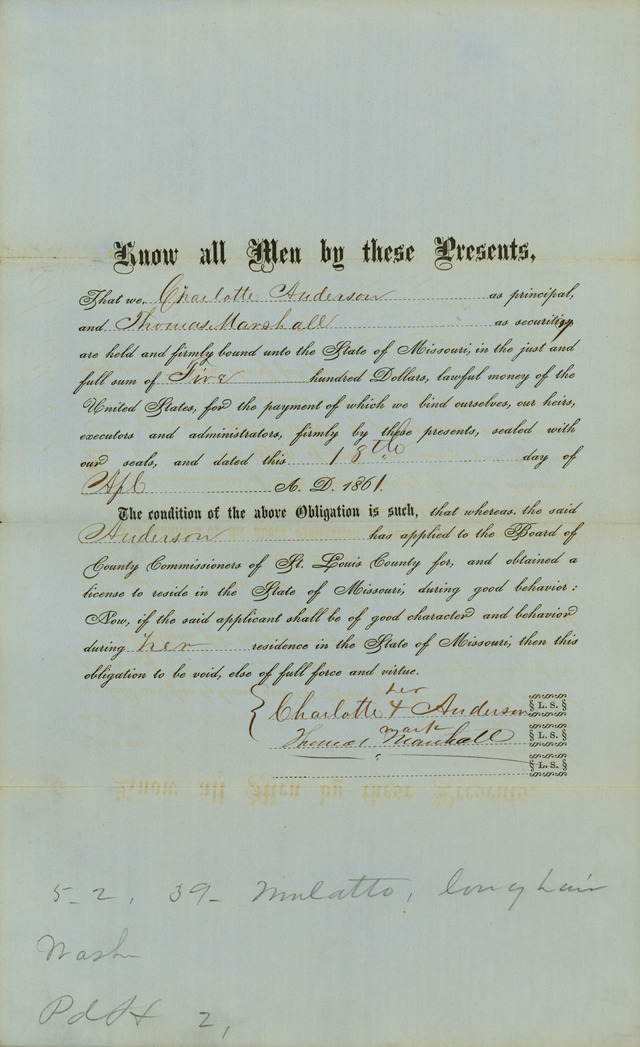 Know all Men by these Presents,
That we, Charlotte Anderson as principal,
and Thomas Marshall as security,
are held and firmly bound unto the State of Missouri, in the just and
full sum of Five hundred Dollars, lawful money of the
United States, for the payment of which we bind ourselves, our heirs,
executors and administrators, firmly by these presents, sealed with
our seals, and dated this 18th day of
Apl A. D. 1861.
The condition of the above Obligation is such, that whereas, the said
Anderson has applied to the Board of
County Commissioners of St. Louis County for, and obtained a
license to reside in the State of Missouri, during good behavior:
Now, if the said applicant shall be of good character and behavior
during her residence in the State of Missouri, then this
obligation to be void, else of full force and virtue.
her
Charlotte X Anderson L. S.
mark
Thomas Marshall L. S.
L. S.
5-2, 39- Mulatto, long hair
Wash
2,